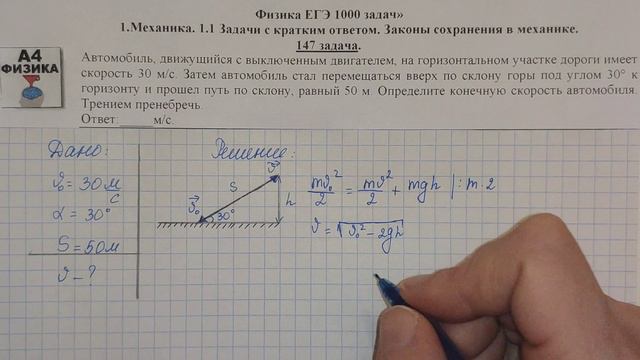 Физика ЕГЭ 1000 задач»
1.Механика. 1.1 Задачи с кратким ответом. Законы сохранения в механике.
147 задача.
А4
ФИЗИКА
Автомобиль, движущийся с выключенным двигателем, на горизонтальном участке дороги имеет
скорость 30 м/с. Затем автомобиль стал перемещаться вверх по склону горы под углом 30° к
горизонту и прошел путь по склону, равный 50 м. Определите конечную скорость автомобиля.
Трением пренебречь.
Ответ:______м/с.
Дано:
υ₀ = 30 м/с
α = 30°
S = 50м
υ – ?
Решение:
υ⃗
S
h
υ⃗₀
30°
mυ₀²/2 = mυ²/2 + mgh |: m·2
υ = √υ₀² – 2gh